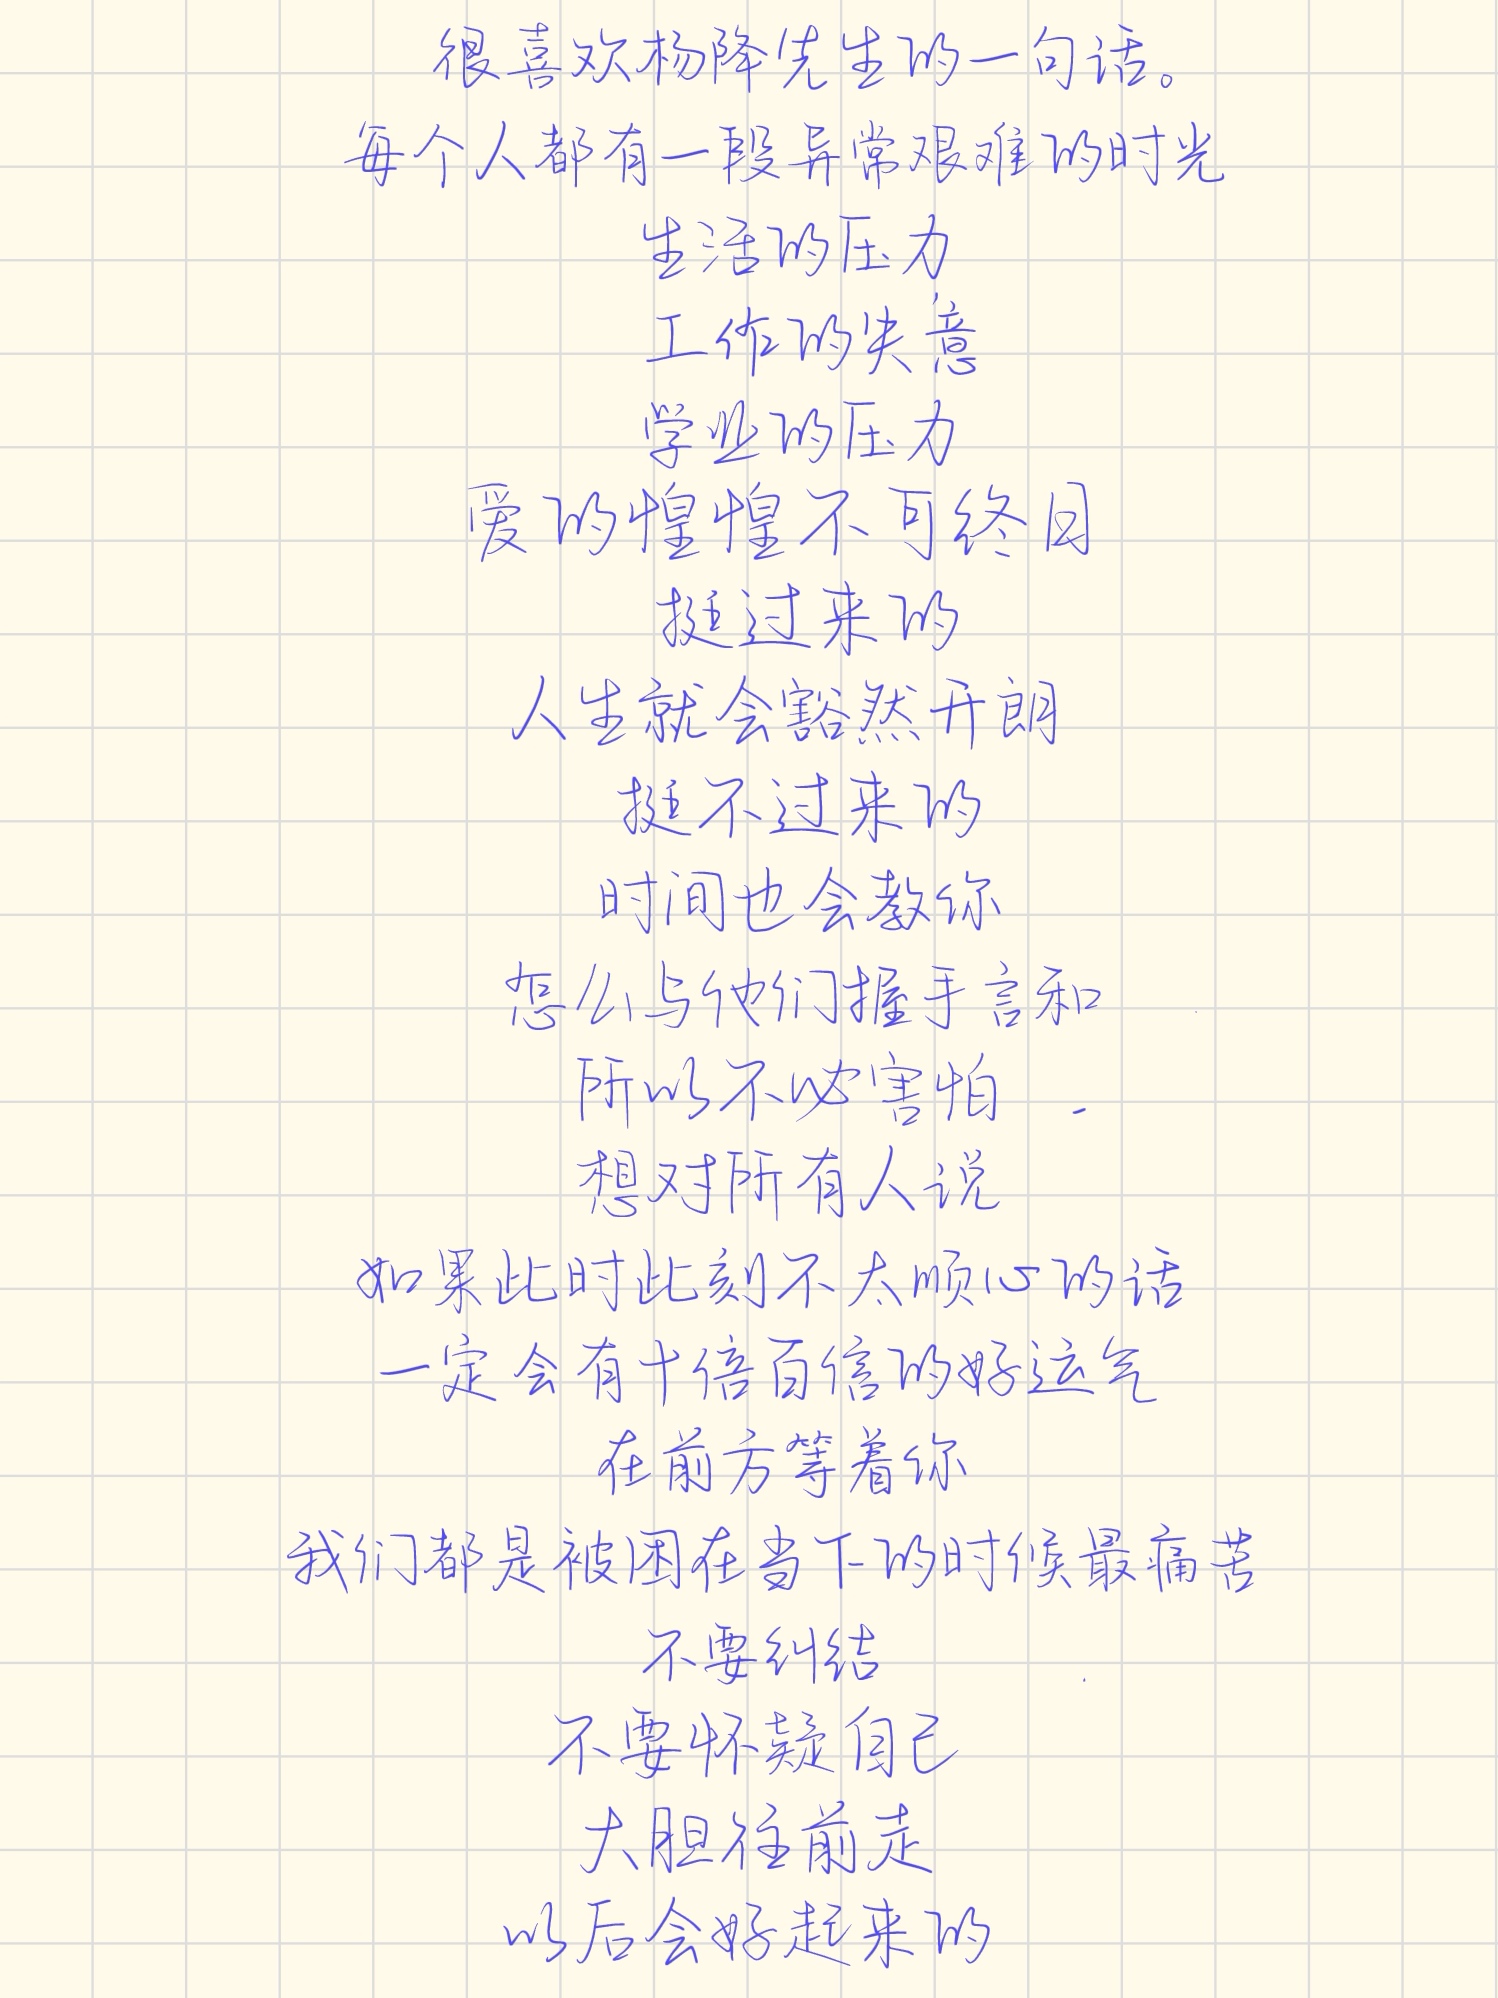 很喜欢杨降先生的一句话。
每个人都有一段异常艰难的时光
生活的压力
工作的失意
学业的压力
爱的惶惶不可终日
挺过来的
人生就会豁然开朗
挺不过来的
时间也会教你
怎么与他们握手言和
所以不必害怕
想对所有人说
如果此时此刻不太顺心的话
一定会有十倍百倍的好运气
在前方等着你
我们都是被困在当下的时候最痛苦
不要纠结
不要怀疑自己
大胆往前走
以后会好起来的